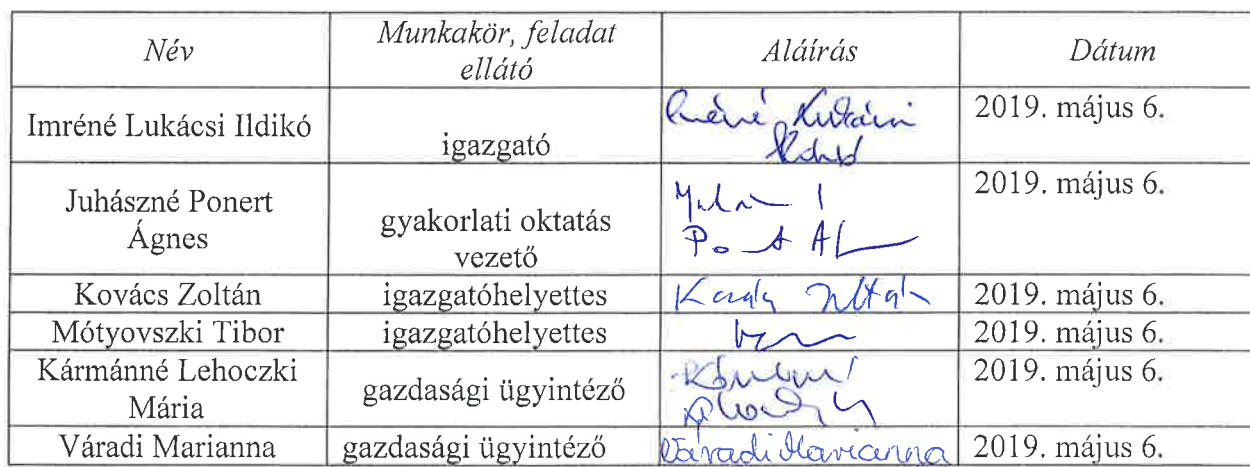 Név Munkakör, feladat ellátó Aláírás Dátum
Imréné Lukácsi Ildikó igazgató Imréné Lukácsi Ildikó 2019. május 6.
Juhászné Ponert Ágnes gyakorlati oktatás vezető 2019. május 6.
Kovács Zoltán igazgatóhelyettes Kovács Zoltán 2019. május 6.
Mótyovszki Tibor igazgatóhelyettes 2019. május 6.
Kármánné Lehoczki Mária gazdasági ügyintéző 2019. május 6.
Váradi Marianna gazdasági ügyintéző Váradi Marianna 2019. május 6.